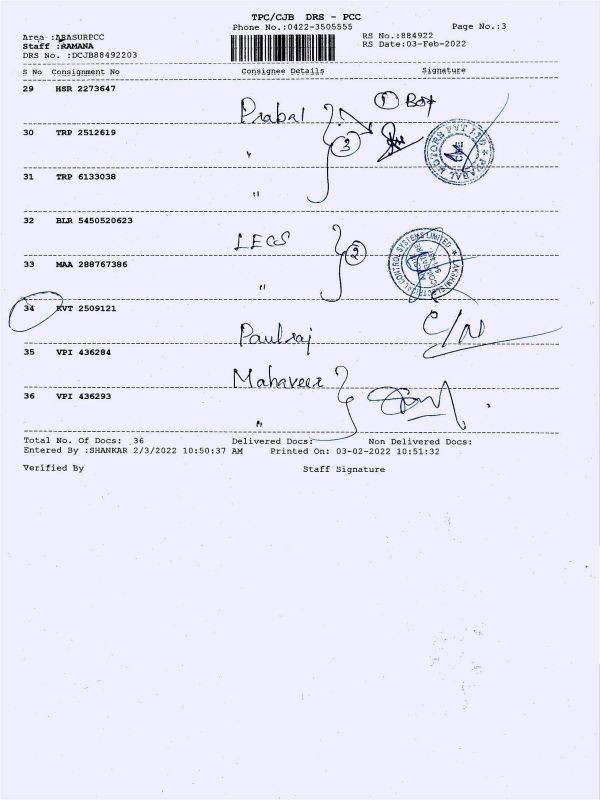 TPC/CJB DRS - PCC
Phone No.:0422-3505555 Page No.:3
Area :ARASURPCC RS No.:884922
Staff :RAMANA RS Date:03-Feb-2022
DRS No. :DCJB88492203
S No Consignment No Consignee Details Signature
29 HSR 2273647 Prabal 1 Box
30 TRP 2512619 " 3
PRABAL MOTORS PVT LTD
31 TRP 6133038 "
32 BLR 5450520623 LECS 2
LAKSHMI ELECTRICAL CONTROL SYSTEMS LIMITED
33 MAA 288767386 "
34 KVT 2509121 Paulraj C/N
35 VPI 436284 Mahaveer
36 VPI 436293 "
Total No. Of Docs: 36 Delivered Docs: Non Delivered Docs:
Entered By :SHANKAR 2/3/2022 10:50:37 AM Printed On: 03-02-2022 10:51:32
Verified By Staff Signature